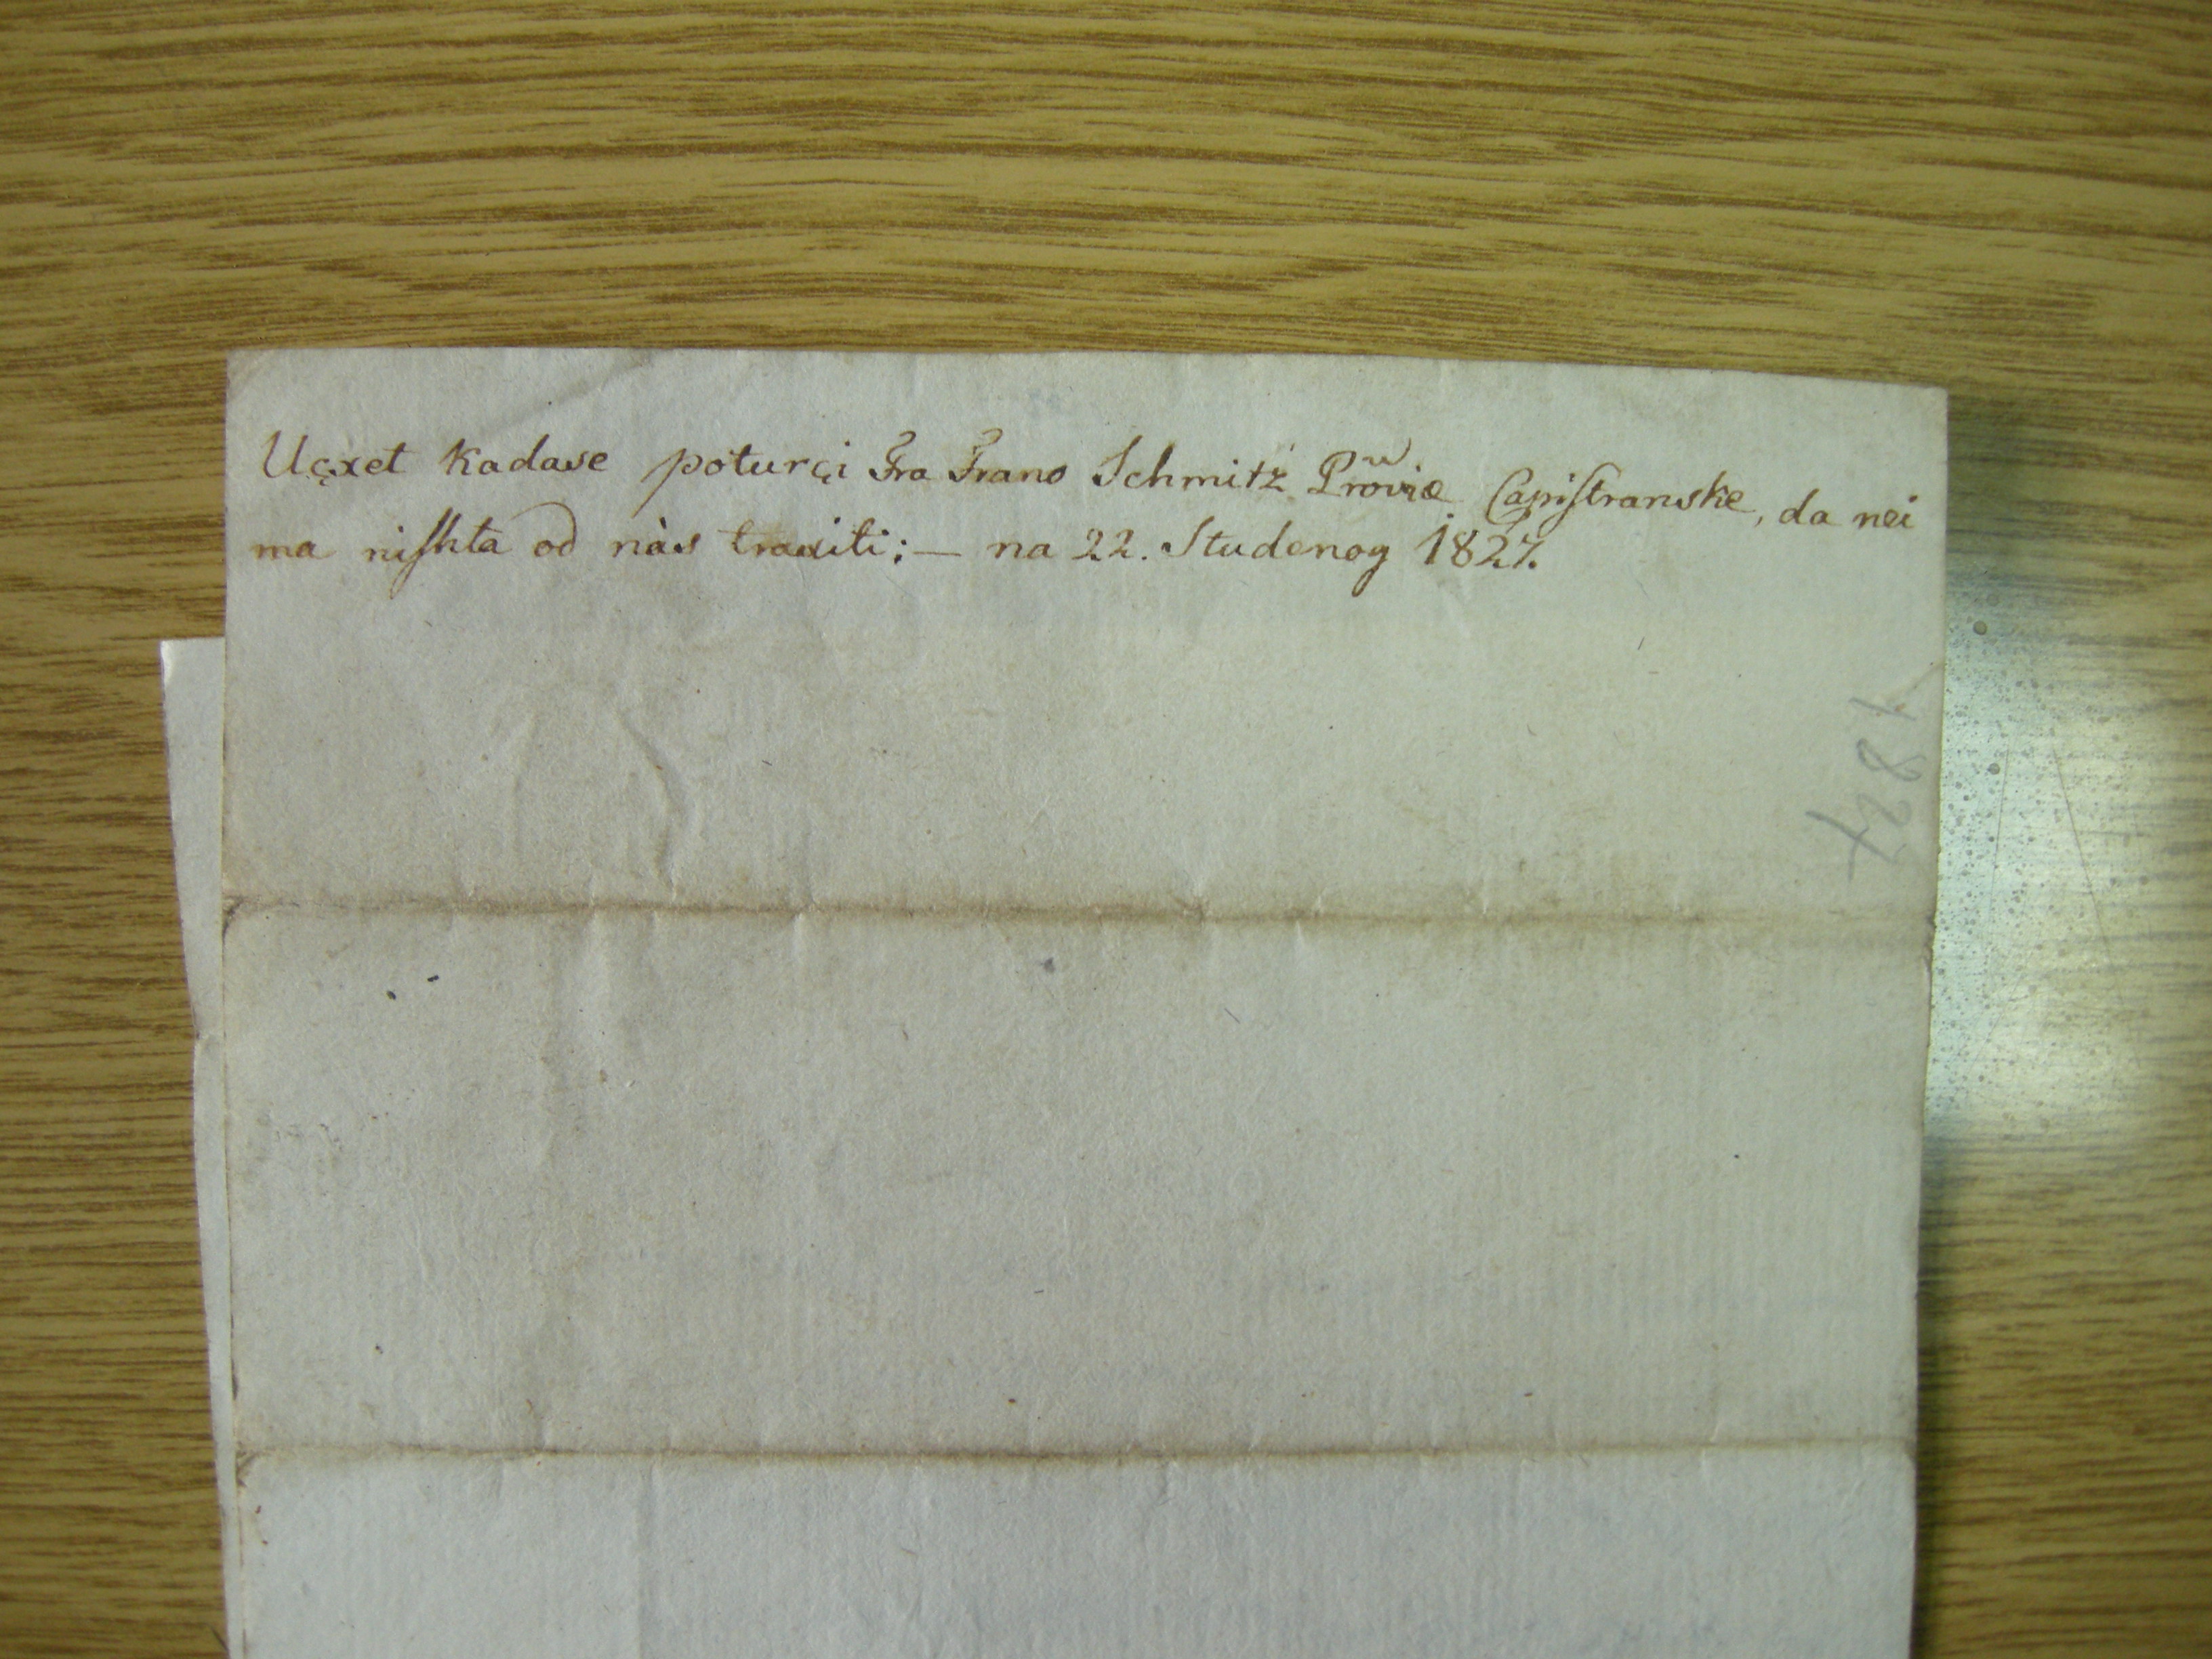 Uçxet kadase poturçi Fra Frano Schmitz Prov̄iæ Capiſtranske, da nei
ma niſhta od nàs traxiti; — na 22. Studenog 1827.
1827